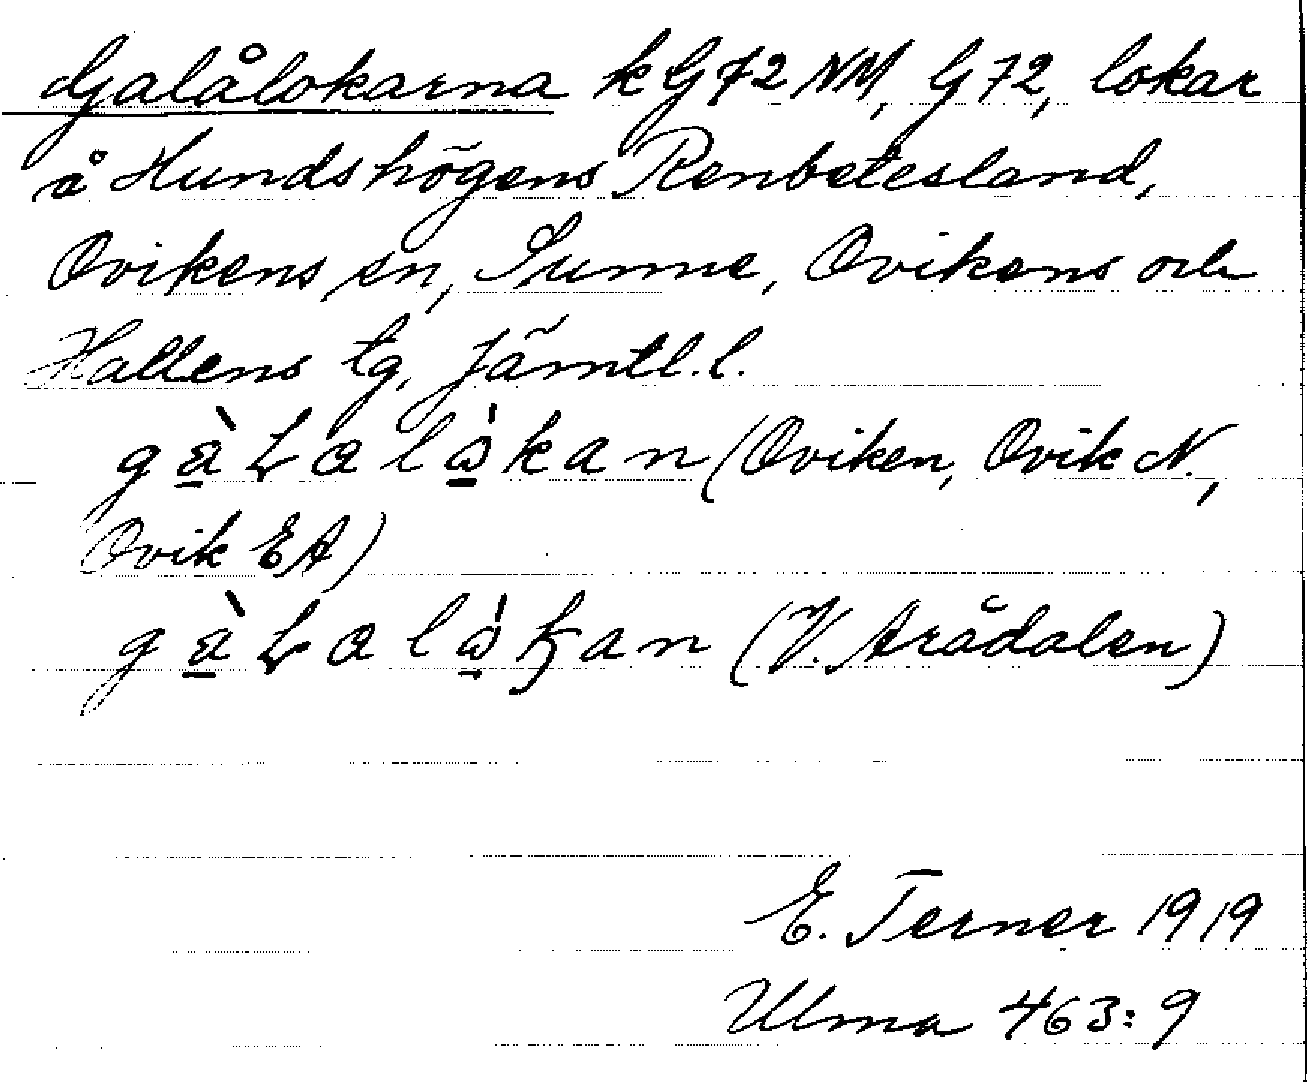 Galålokarna k G72 NM, G 72, lokar
å Hundshögens Renbetesland,
Ovikens sn, Sunne, Ovikens och
Hallens tg, Jämtl.l.
gàLalòkan (Oviken, Ovik N.,
Ovik EA)
gàLalòkan (V. Arådalen)
E. Terner 1919
Ulma 463:9